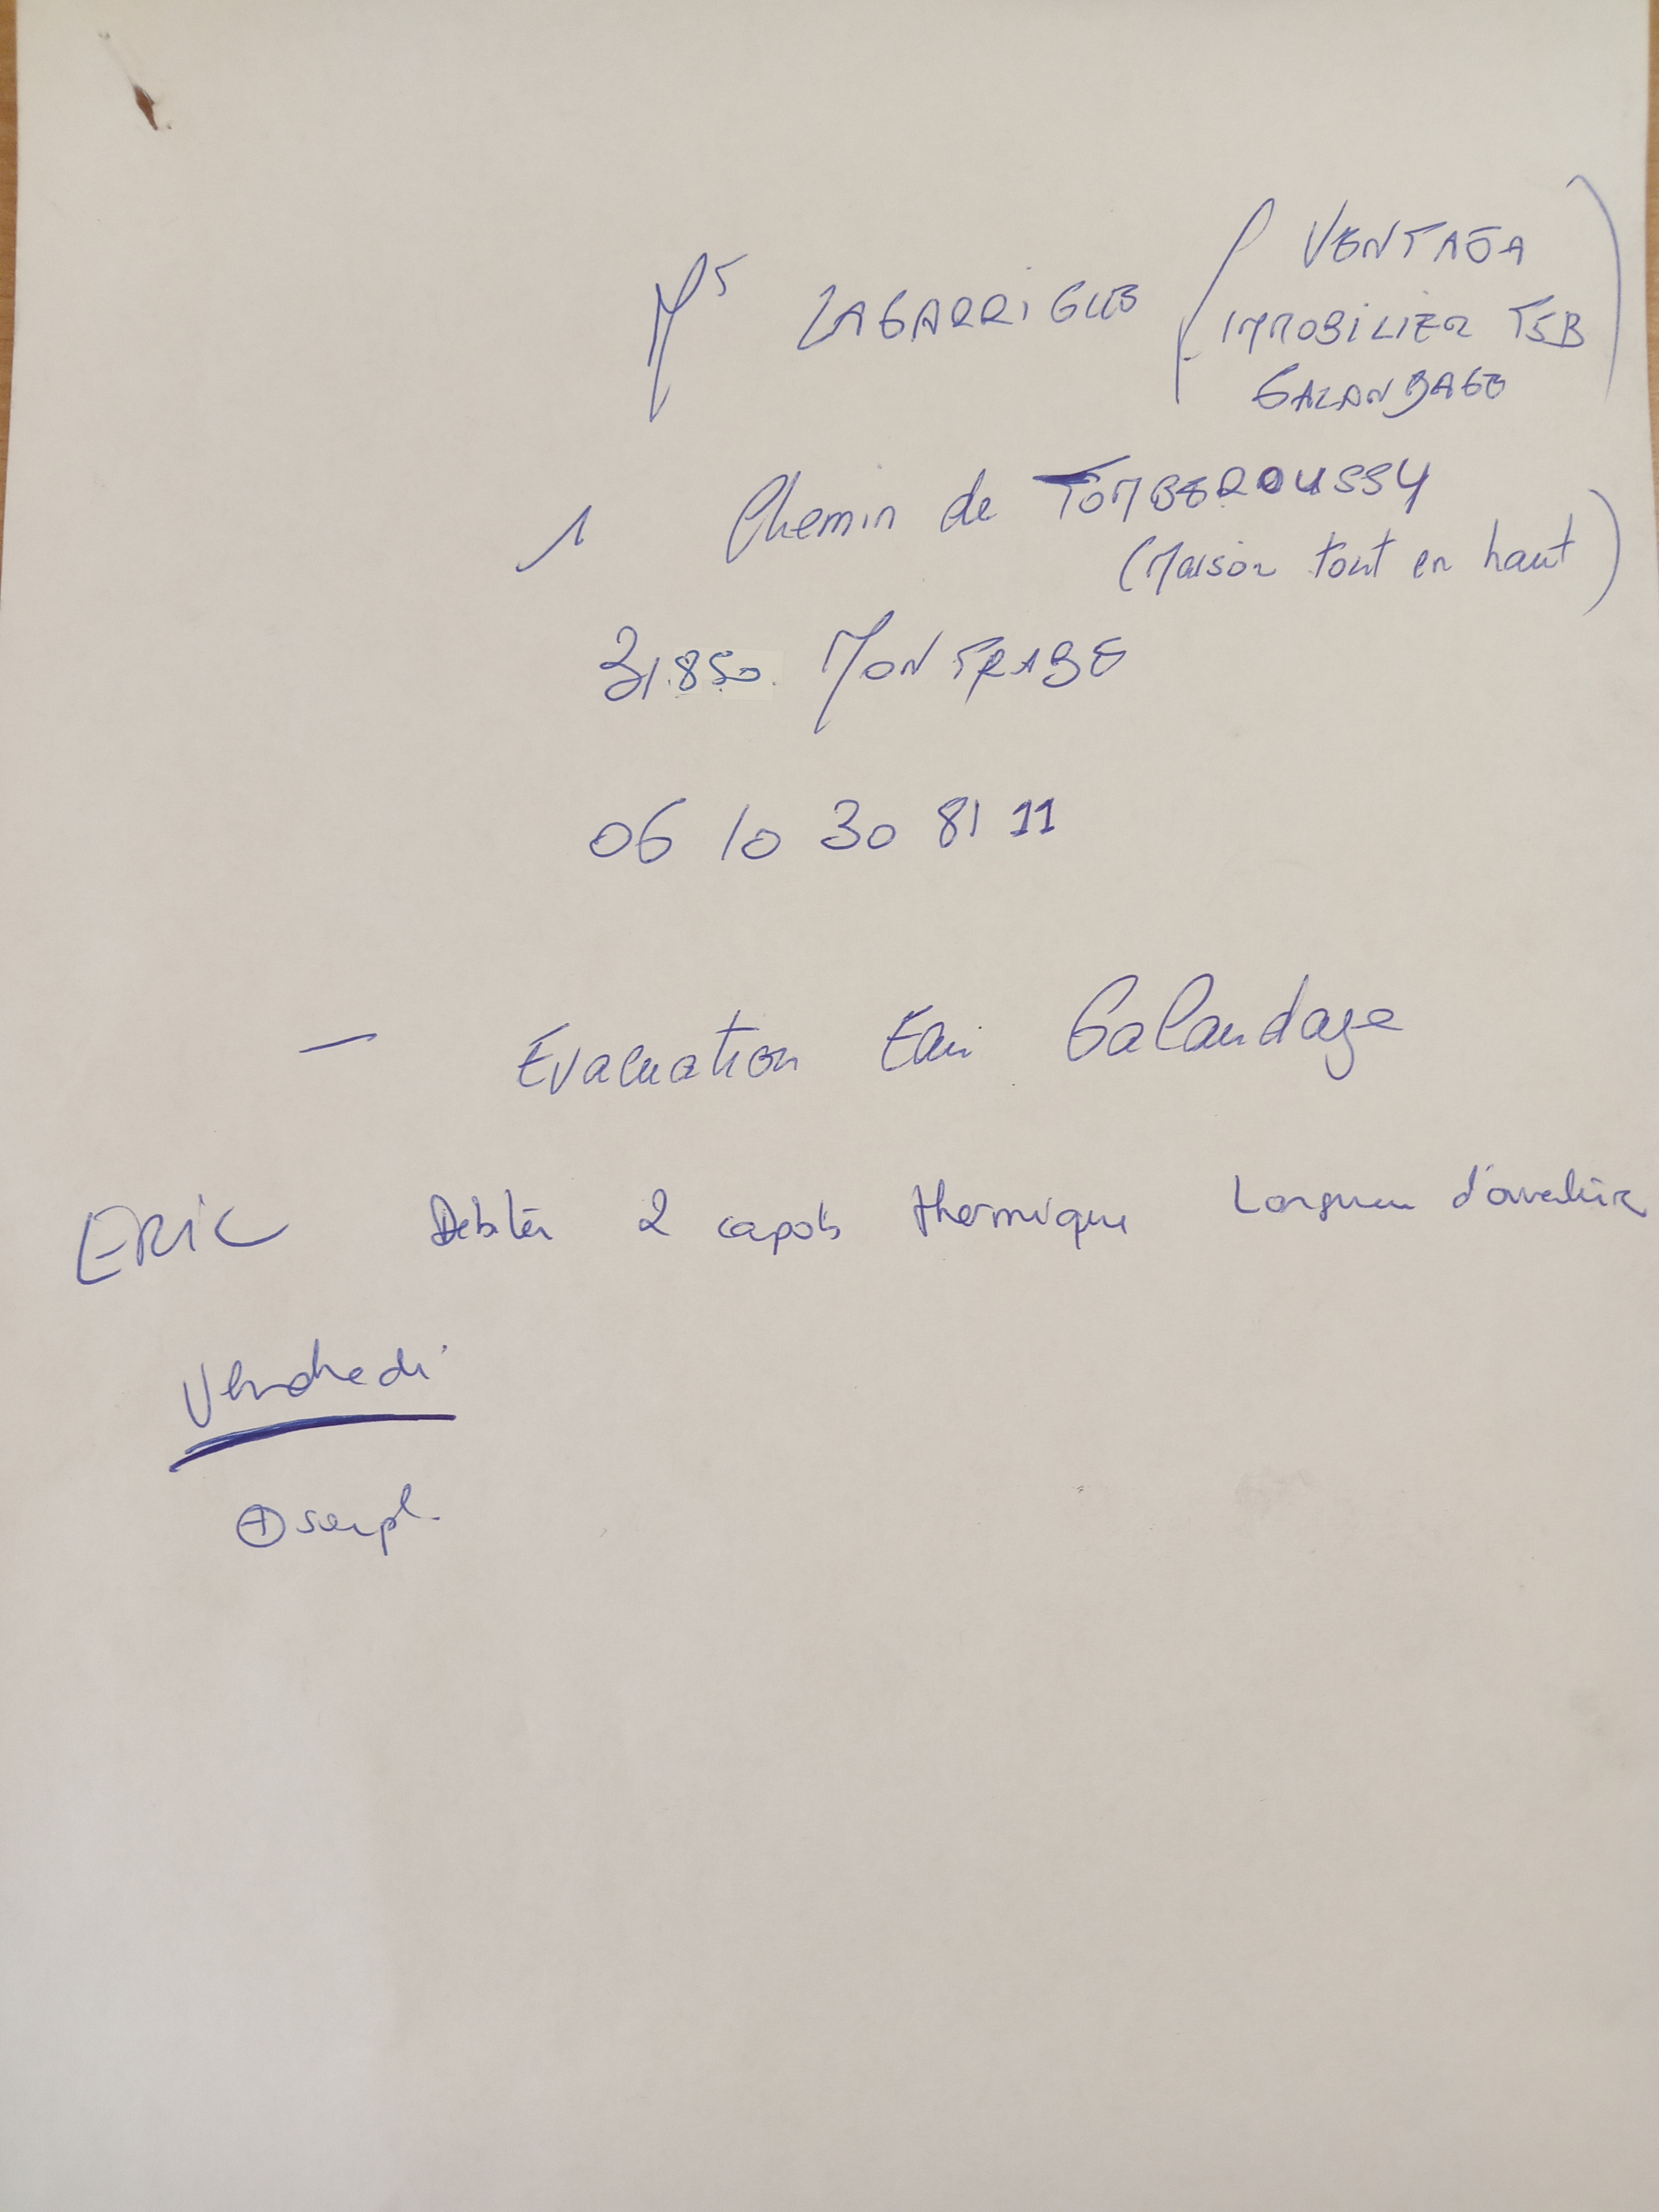 Mr LAGARRIGUE (VENTAJA
IMMOBILIER TSB
GALANDAGE)
1 Chemin de TOMBEROUSSY
(Maison tout en haut)
31850 MONTRABE
06 10 30 81 11
- Evacuation Eau Galandage
ERIC Débiter 2 capots thermique Longueur d'ouverture
Vendredi